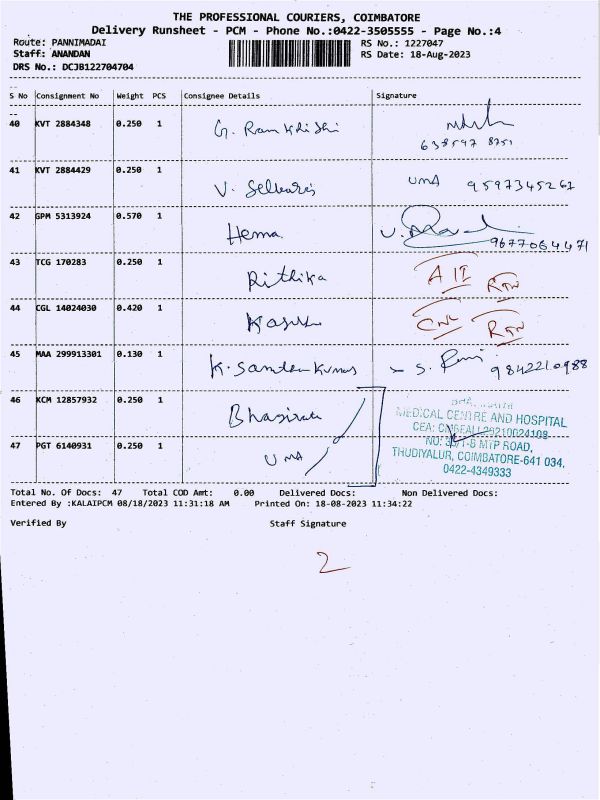 THE PROFESSIONAL COURIERS, COIMBATORE
Delivery Runsheet - PCM - Phone No.:0422-3505555 - Page No.:4
Route: PANNIMADAI RS No.: 1227047
Staff: ANANDAN RS Date: 18-Aug-2023
DRS No.: DCJB122704704
S No Consignment No Weight PCS Consignee Details Signature
40 KVT 2884348 0.250 1 G. Ram
41 KVT 2884429 0.250 1 V. UMA 9597345261
42 GPM 5313924 0.570 1 Hema 9677064471
43 TCG 170283 0.250 1 Rithika RTN
44 CGL 14024030 0.420 1 RTN
45 MAA 299913301 0.130 1 K. S. 9842210988
46 KCM 12857932 0.250 1
MEDICAL CENTRE AND HOSPITAL
47 PGT 6140931 0.250 1 UMA
MTP ROAD,
THUDIYALUR, COIMBATORE-641 034.
0422-4349333
Total No. Of Docs: 47 Total COD Amt: 0.00 Delivered Docs: Non Delivered Docs:
Entered By :KALAIPCM 08/18/2023 11:31:18 AM Printed On: 18-08-2023 11:34:22
Verified By Staff Signature
2